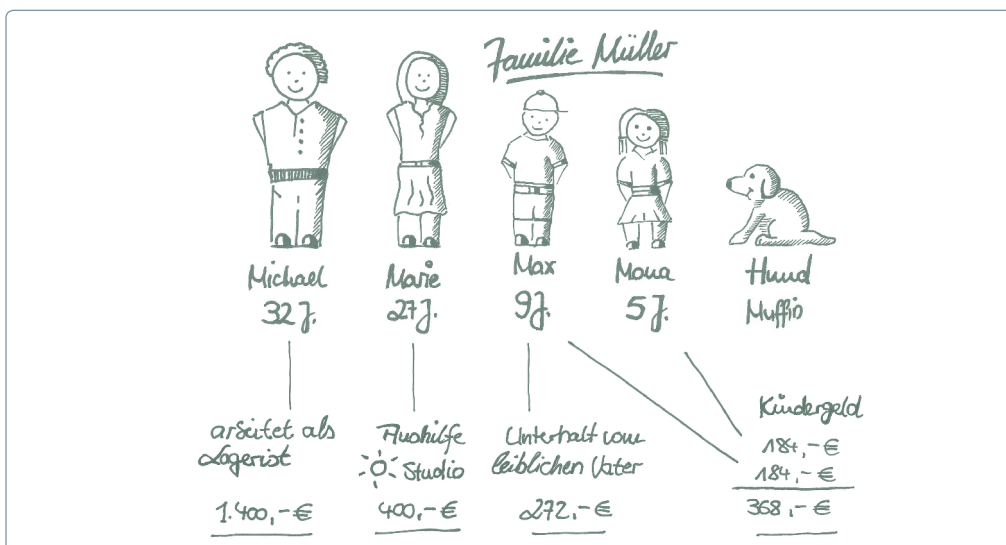 Familie Müller
Michael
32 J.
Marie
27 J.
Max
9 J.
Mona
5 J.
Hund
Muffin
arbeitet als
Lagerist
1.400,-€
Aushilfe
Studio
400,-€
Unterhalt vom
leiblichen Vater
272,-€
Kindergeld
184,-€
184,-€
368,-€